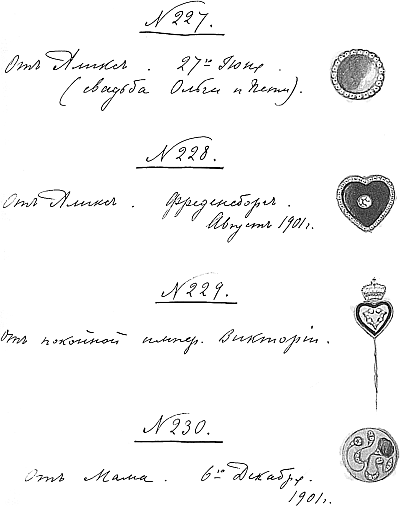 № 227.
Отъ Аликсъ. 27го Іюня
(свадьба Ольги и Пети).
№ 228.
Отъ Аликсъ. Фреденсборгъ.
Августъ 1901 г.
№ 229.
Отъ покойной импер. Викторіи.
№ 230.
Отъ Мама. 6го Декабря.
1901 г.